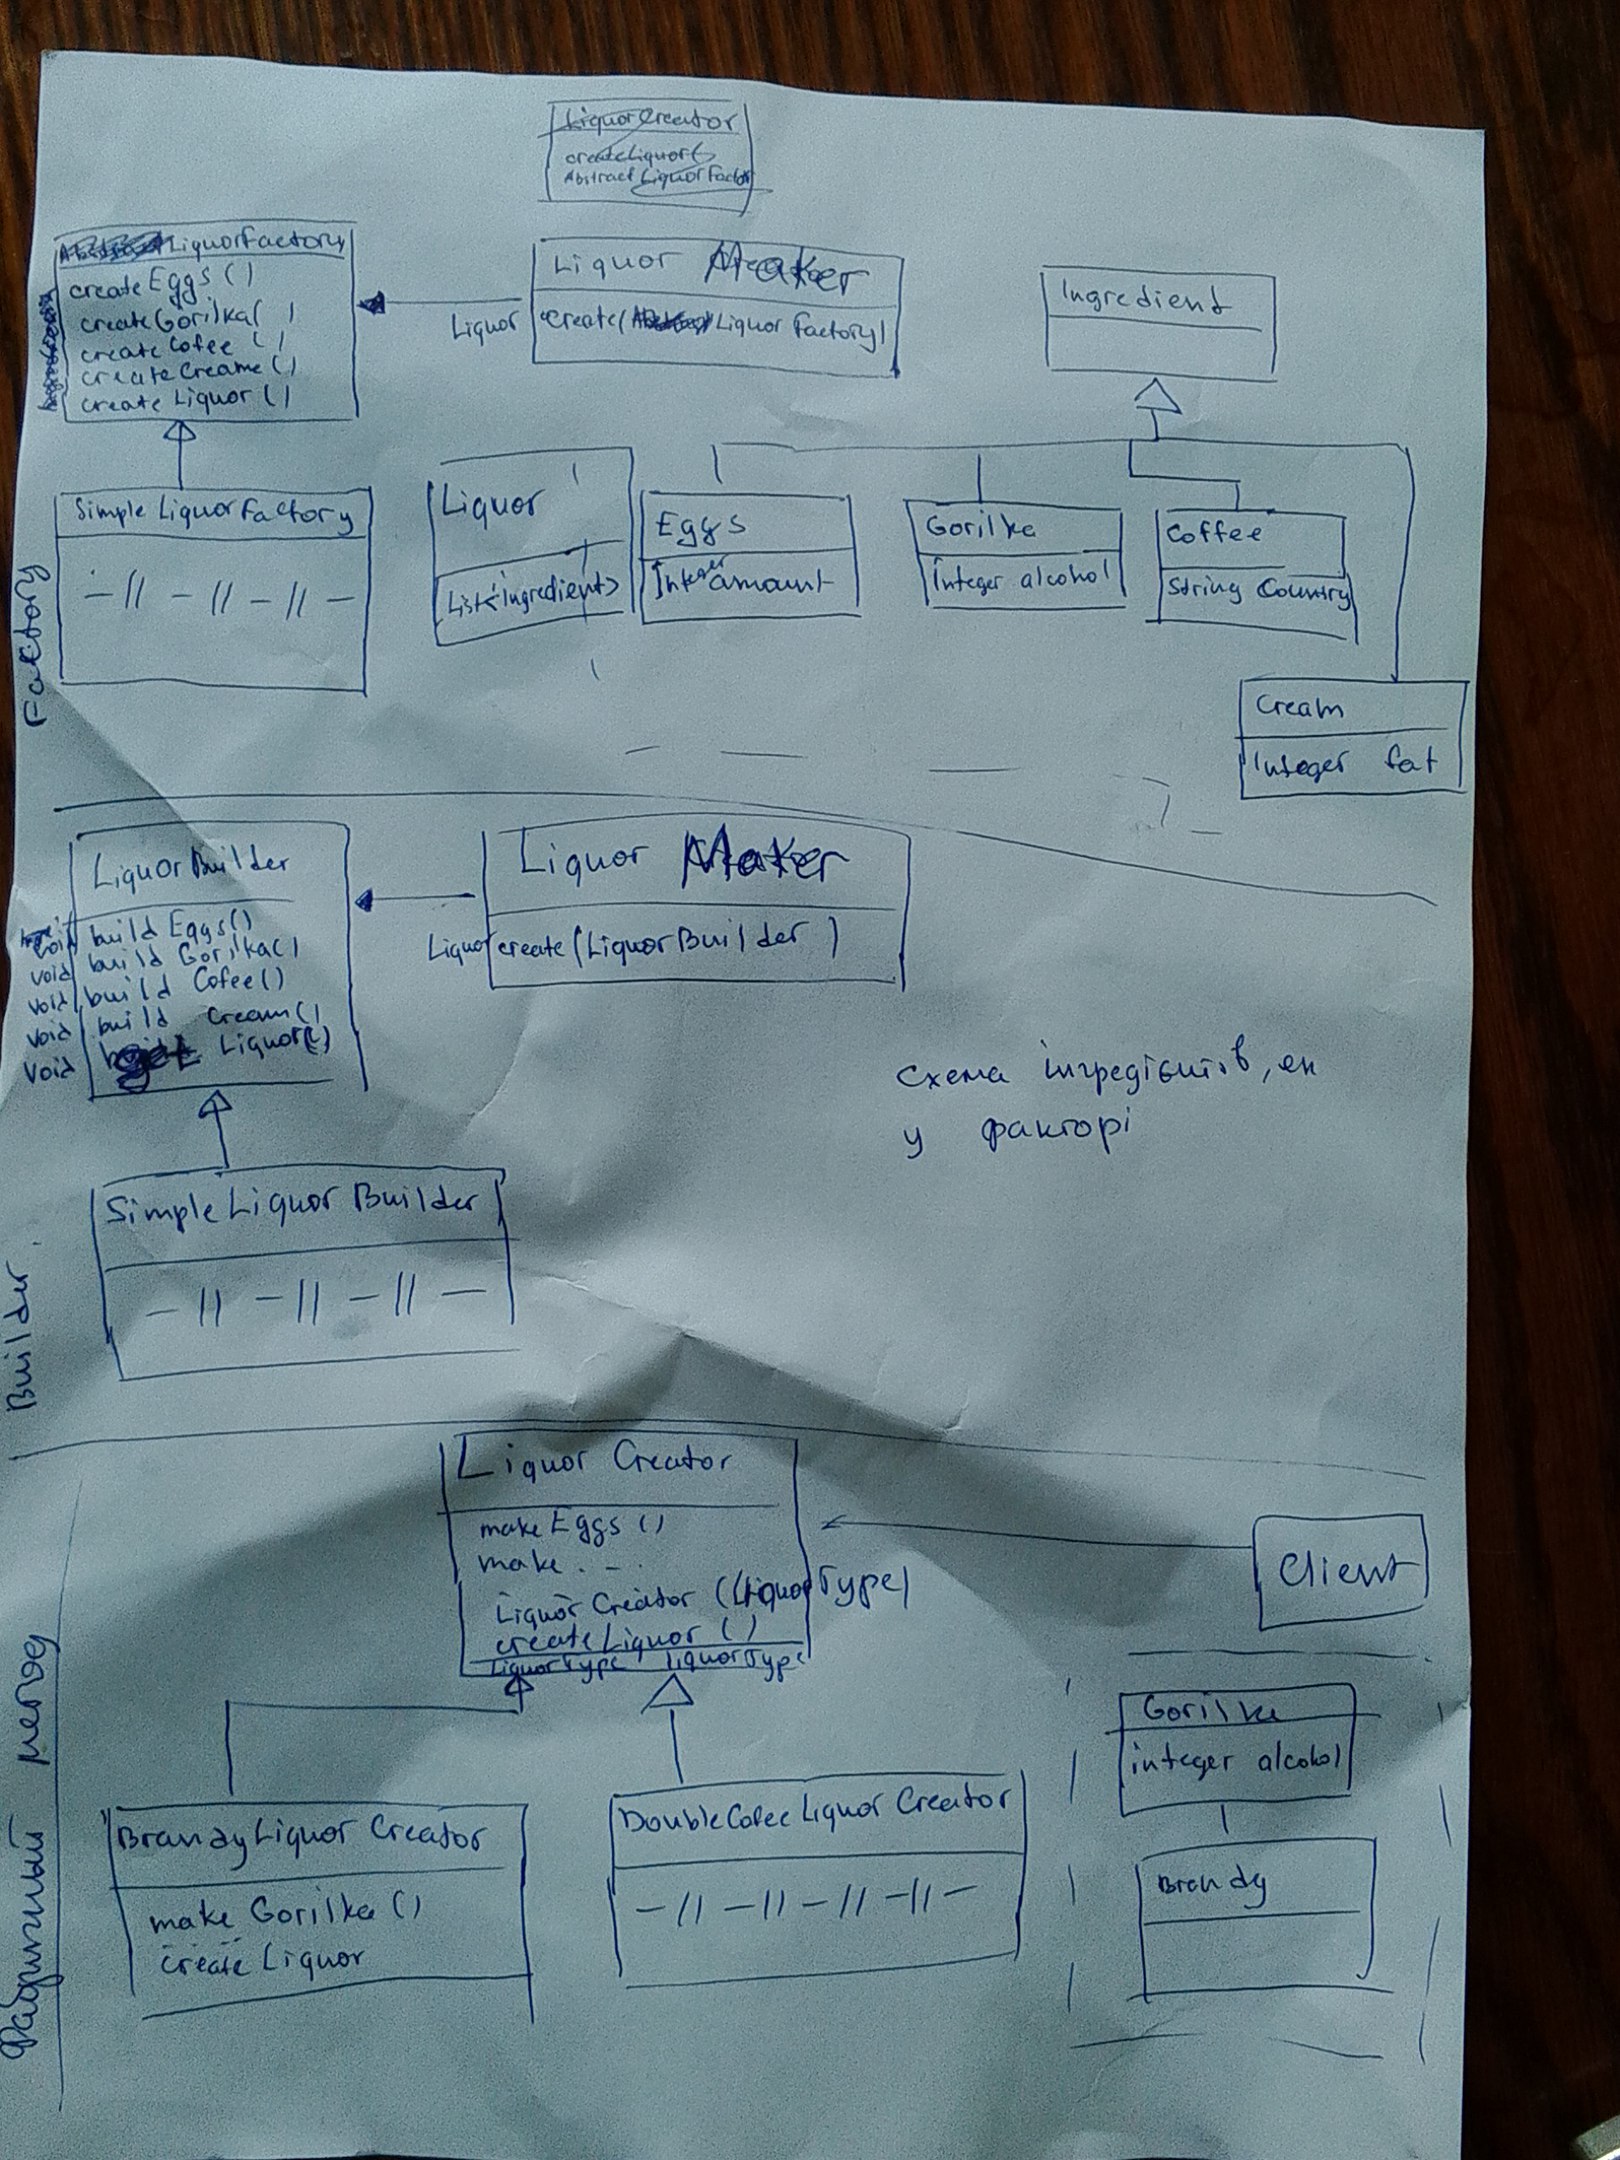 LiquorCreator
createLiquor()
Abstract LiquorFactor
LiquorFactory
createEggs()
createGorilka( )
createCofee ( )
createCreame()
create Liquor()
Liquor Maker
Liquor create( LiquorFactory)
Ingredient
Simple LiquorFactory
— // — // — // —
Liquor
List<ingredient>
Eggs
Integer amount
Gorilka
Integer alcohol
Coffee
String Country
Cream
Integer fat
Factory
LiquorBuilder
void build Eggs()
void build Gorilka()
void build Cofee()
void build Cream()
void get Liquor()
Liquor Maker
Liquor create(LiquorBuilder )
Схема інгредієнтів, як
у факторі
SimpleLiquorBuilder
— // — // — // —
Builder
Liquor Creator
make Eggs ()
make . - .
Liquor Creator (LiquorType)
createLiquor ()
LiquorType LiquorType
Client
BrandyLiquor Creator
make Gorilka ()
create Liquor
DoubleCofeeLiquor Creator
— // — // — // — // —
Gorilka
integer alcohol
Brandy
Фабричный метод